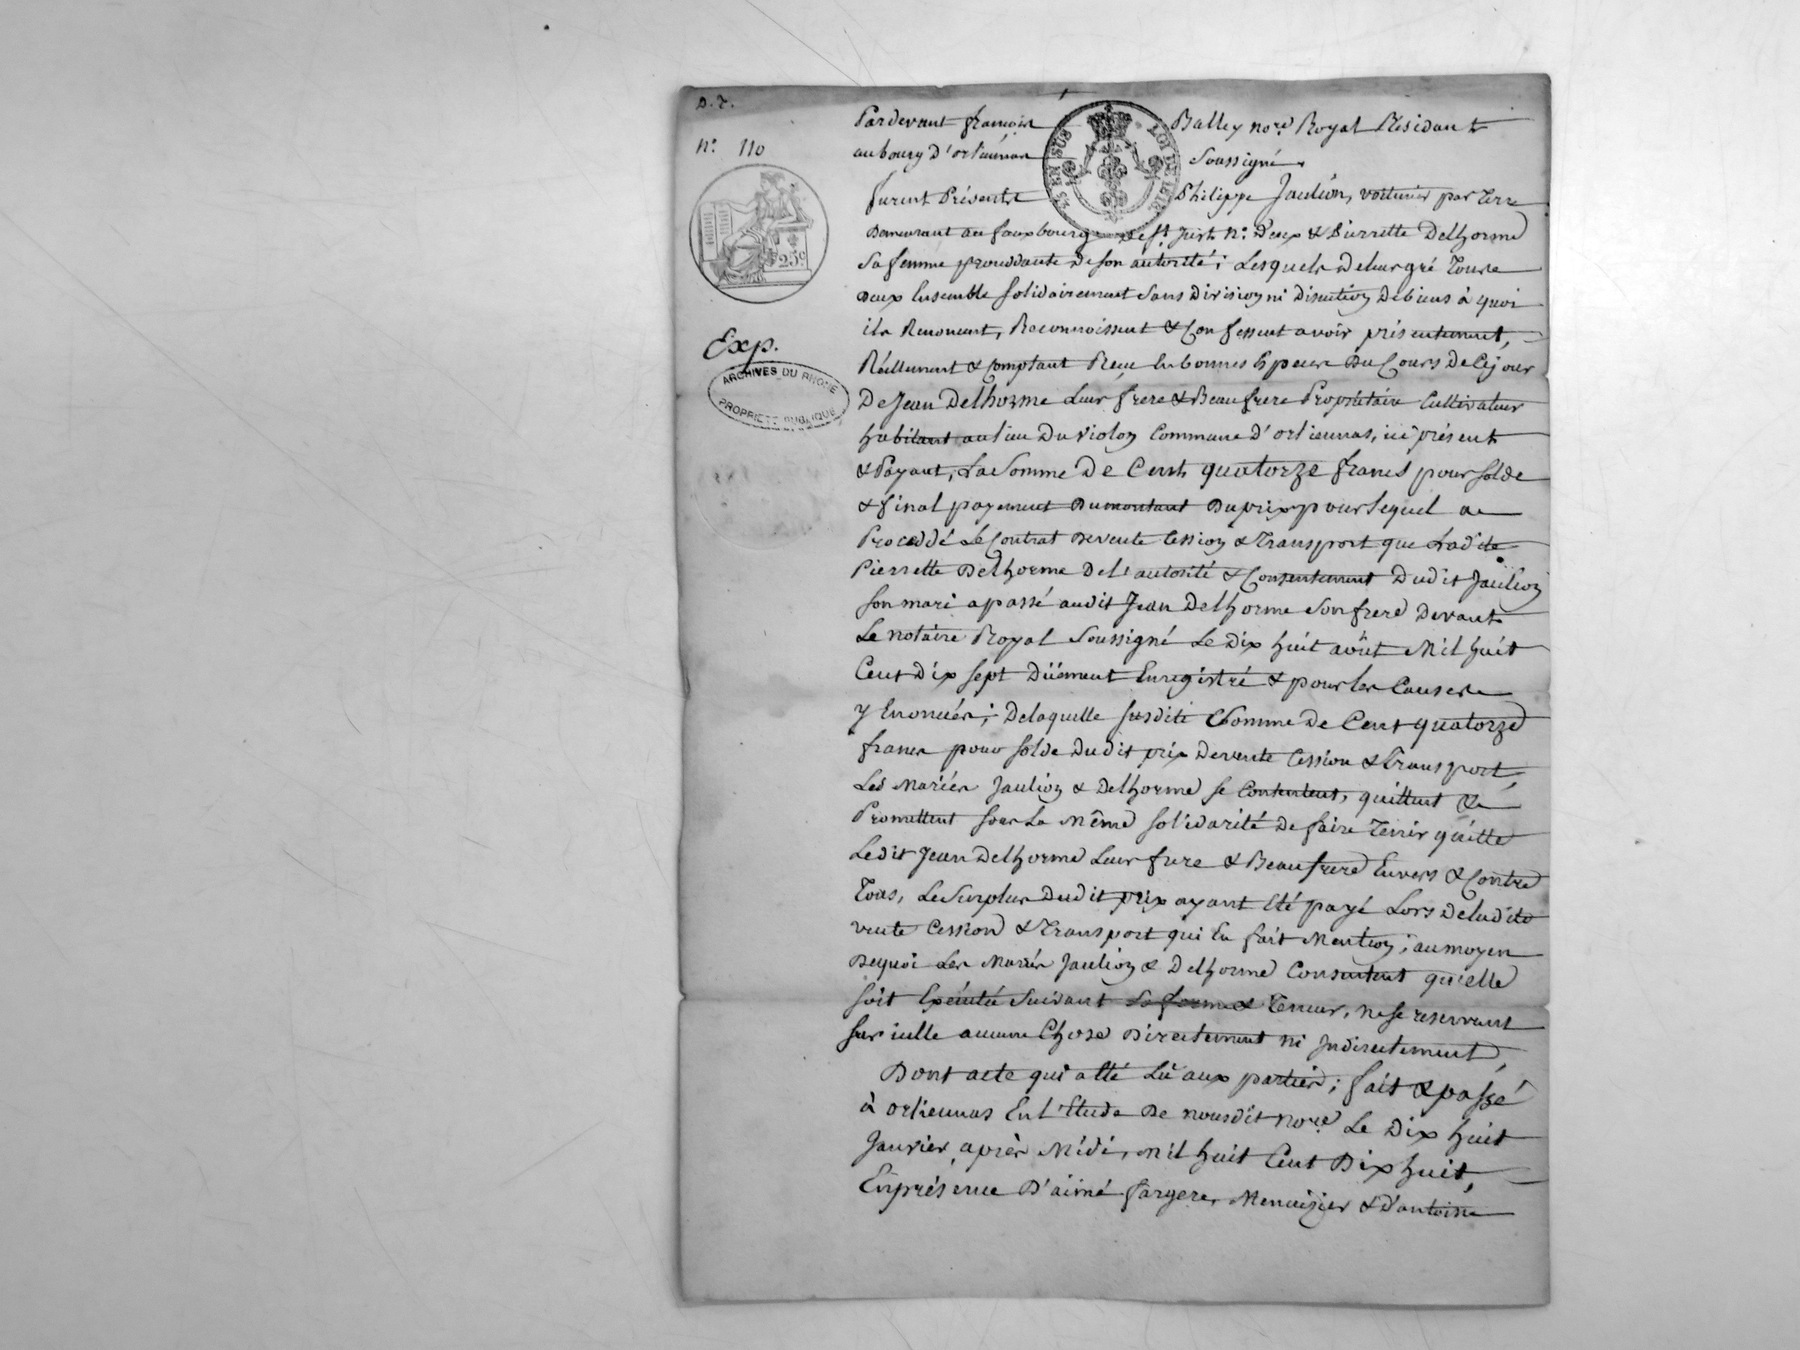 D. 2.
N.° 110
25c
Exp.
ARCHIVES DU RHONE
PROPRIETE PUBLIQUE
ES EN SUS
LOI DE
Pardevant françois Balley nore. Royal Résidant
au bourg d'orliénas Soussigné.
furent Présents Philippe Jaulion, voiturier par terre
Demeurant au fauxbourg de st. Just n.° Deux & Pierrette Delhorme
Sa femme procédante De son autorité; Lesquels De leur gré Tous
Deux Ensemble solidairement Sans Division ni Discution De biens à quoi
ils Renoncent, Reconnoissent & Confessent avoir présentement,
Réellement & Comptant Reçu En bonnes Espèces Du Cours De Cejour
De Jean Delhorme Leur frere & Beaufrere Propriétaire Cultivateur
habitant au lieu Du Violon Commune d'orliennas, ici présent
& Payant, La Somme De Cent quatorze francs pour solde
& final payement Du montant Du prix pour lequel a
Procédé Le Contrat De vente Cession & Transport que Ladite
Pierrette Delhorme De l'autorité & Consentement Dudit Jaulion
son mari a passé audit Jean Delhorme Son frere Devant
Le notaire Royal Soussigné Le Dix huit août Mil huit
Cent Dix sept Düement Enregistré & pour les Causes
y Enoncées; De laquelle susdite Somme De Cent quatorze
francs pour solde Dudit prix De vente Cession & Transport,
Les Mariés Jaulion & Delhorme se Contentent, quittent &
Promettent sous La Même solidarité De faire Tenir quitte
Ledit Jean Delhorme Leur frere & Beaufrere Envers & Contre
Tous, Le Surplus Dudit prix ayant Eté payé Lors De ladite
vente Cession & Transport qui En fait Mention; au moyen
De quoi Les Mariés Jaulion & Delhorme Consentent qu'elle
soit Exécutée Suivant Sa forme & Teneur, ne se reservant
sur icelle aucune Chose Directement ni Indirectement,
Dont acte qui a Eté Lû aux parties; fait & passé
à orliennas En L'Etude De nousdit nore. Le Dix huit
Janvier après Midi, Mil huit Cent Dix huit,
En présence D'aimé fargere, Menuizier & D'antoine